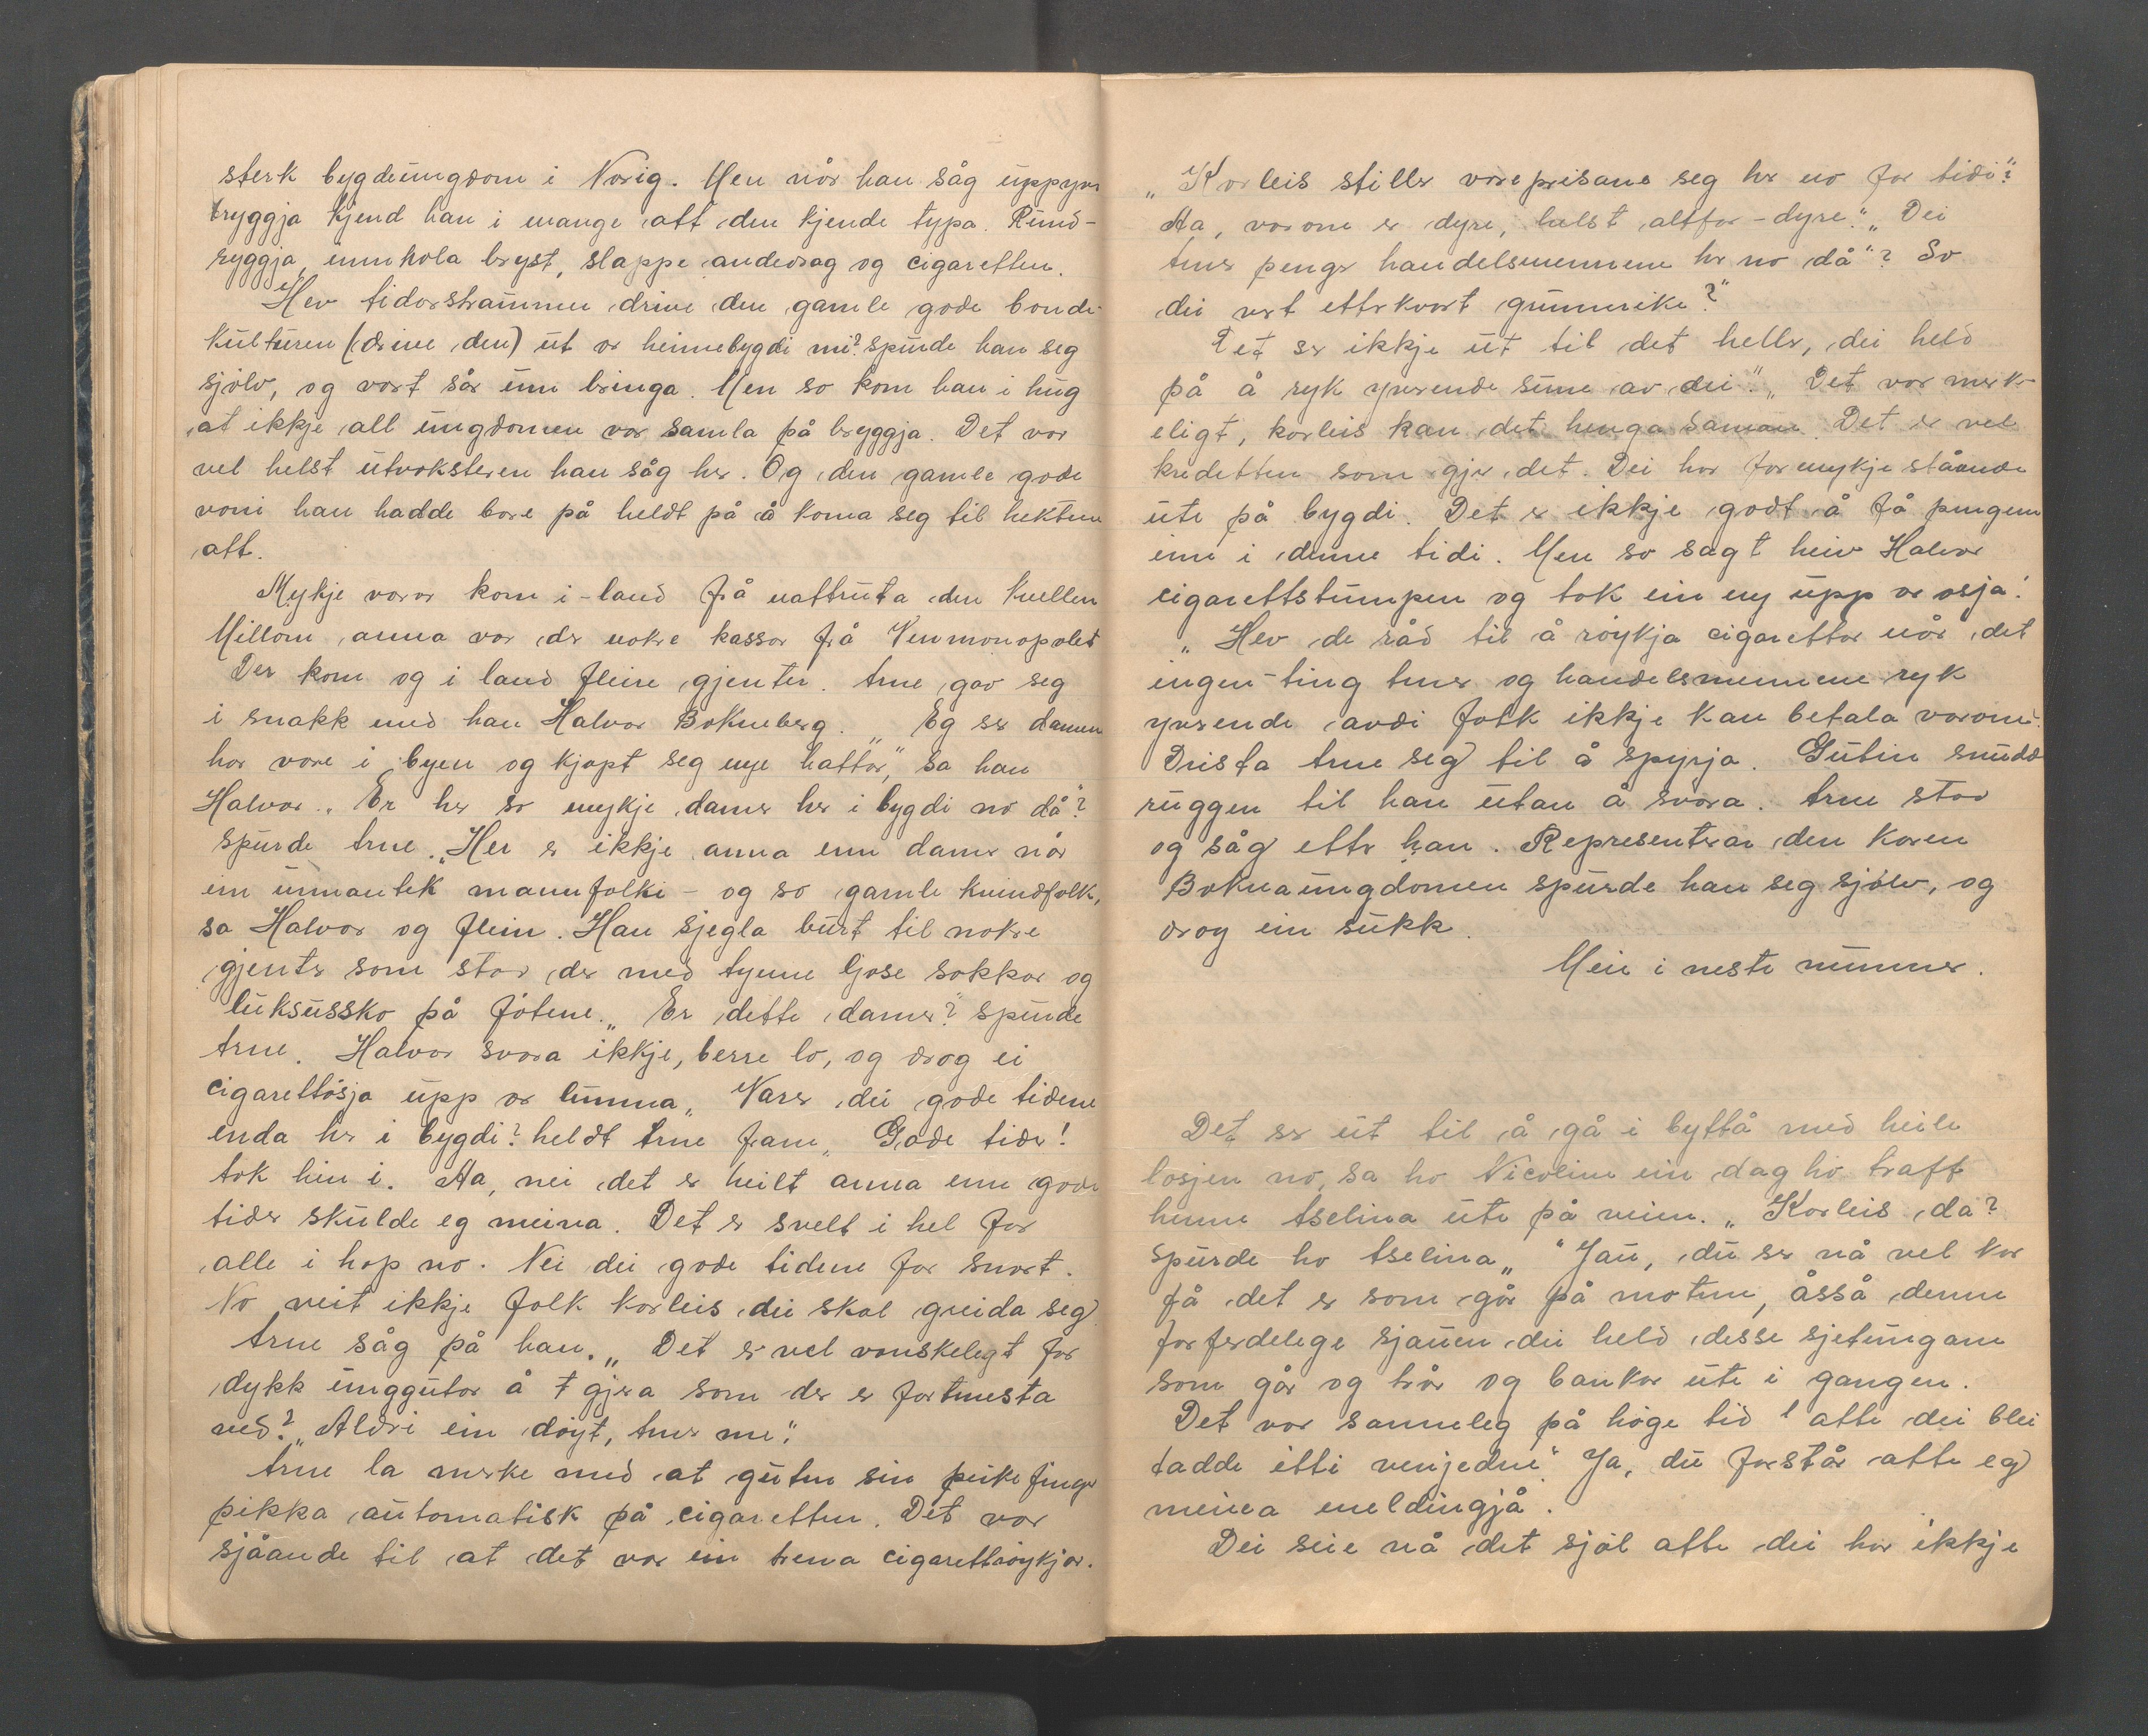 sterk bygdeungdom i Norig. Men når han såg uppyver
bryggja kjend han i mange att den kjende typa. Rund-
ryggja, innhola bryst, slappe andedrag og cigaretten.
Hev tidarstraumen drive den gamle gode bonde-
kulturen (drive den) ut or heimebygdi mi? spurde han seg
sjølv, og vart sår inn bringa. Men so kom han i hug
at ikkje all ungdomen var samla på bryggja. Det var
vel helst utvoksteren han såg her. Og den gamle gode
voni han hadde bore på heldt på å koma seg til hektene
att.
Mykje varor kom i-land frå nattruta den kvellen
Millom anna var der nokre kassar frå Vinmonopolet
Der kom og i land fleire gjenter. Arne gav seg
i snakk med han Halvor Bokneberg. „Eg ser damene
har vore i byen og kjøpt seg nye hattar," sa han
Halvor. „Er her so mykje damer her i bygdi no då"?
spurde Arne. „Her er ikkje anna enn damer når
ein unnantek mannfolki - og so gamle kvindfolk,
sa Halvor og flein. Han sjegla burt til nokre
gjenter som stod der med tynne ljose sokkar og
luksussko på føtene. „Er dette damer?" spurde
Arne. Halvor svara ikkje, berre lo, og drog ei
cigarettøsja upp or lumma „Varer dei gode tidene
enda her i bygdi? heldt Arne fram „Gode tider!
tok hin i. Aa, nei det er heilt anna enn gode
tider skulde eg meina. Det er svelt i hel for
alle i hop no. Nei dei gode tidene for snart.
No veit ikkje folk korleis dei skal greida seg.
Arne såg på han. „Det er vel vanskelegt for
dykk unggutar å få gjera som der er fortenesta
ved? „Aldri ein døyt, tener me".
Arne la merke med at guten sin peikefinger
pikka automatisk på cigaretten. Det var
sjåande til at det var ein trena cigarettrøykjar.
„Korleis stiller vareprisane seg her no for tidi?"
Aa, varone er dyre, helst altfor-dyre." „Dei
tener pengar handelsmennene her no då"? So
dei vert etterkvart grunnrike?"
Det ser ikkje ut til det heller, dei held
på å ryk yverende sume av dei". „Det var merk-
eligt, korleis kan det henga saman. Det er vel
kredetten som gjer det. Dei har for mykje ståande
ute på bygdi. Det er ikkje godt å få pengene
inn i denne tidi. Men so sagt heiv Halvor
cigarettstumpen og tok ein ny upp or øsja.
„Hev de råd til å røykja cigarettar når det
ingen-ting tener og handelsmennene ryk
yverende avdi folk ikkje kan betala varone.
Drista Arne seg til å spyrja. Guten snudde
ruggen til han utan å svara. Arne stod
og såg etter han. Representerar den karen
Boknaungdomen spurde han seg sjølv, og
drog ein sukk.
Meir i neste nummer.
Det ser ut til å gå i byttå med heile
losjen no, sa ho Nicoline ein dag ho traff
henne Aselina ute på veien. „Korleis da?
spurde ho Aselina „ "Jau, du ser nå vel kor
få det er som går på møtene, åsså denne
forferdelege sjauen dei held desse sjetungane
som går og trår og bankar ute i gangen.
Det var sanneleg på høge tid atte dei blei
tadde itti venjedne". Ja, du forstår atte eg
meina meldingjå.
Dei seie nå det sjøl atte dei har ikkje